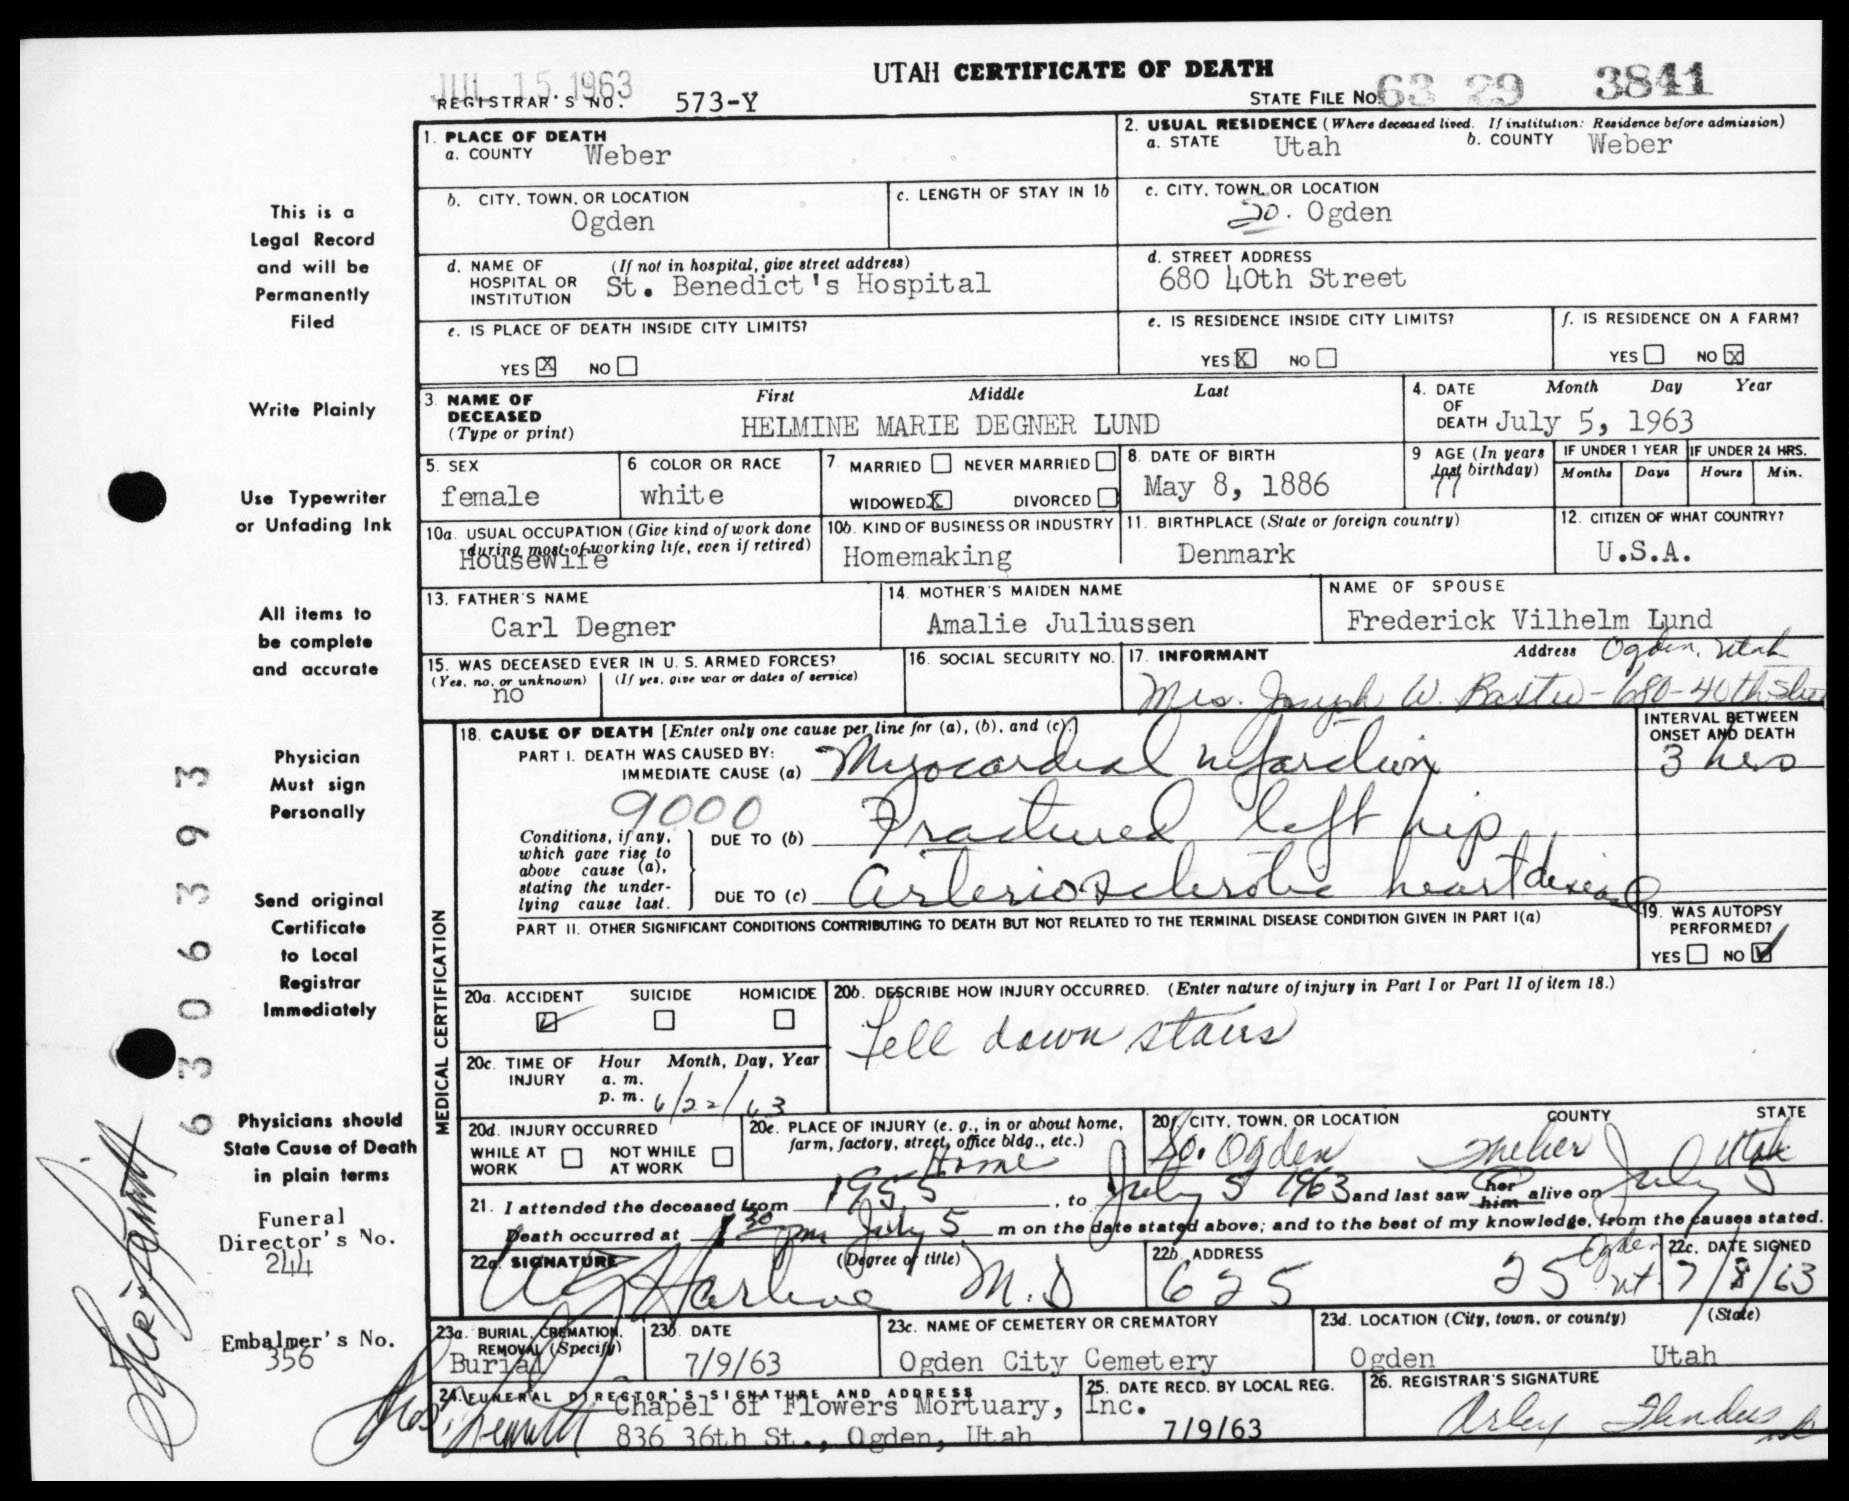 JUL 15 1963
UTAH CERTIFICATE OF DEATH
REGISTRAR'S NO. 573-Y
STATE FILE NO. 63 29 3841
This is a
Legal Record
and will be
Permanently
Filed
Write Plainly
Use Typewriter
or Unfading Ink
All items to
be complete
and accurate
Physician
Must sign
Personally
Send original
Certificate
to Local
Registrar
Immediately
Physicians should
State Cause of Death
in plain terms
Funeral
Director's No.
244
Embalmer's No.
356
6 3 0 6 3 9 3
1. PLACE OF DEATH
a. COUNTY Weber
2. USUAL RESIDENCE (Where deceased lived. If institution: Residence before admission)
a. STATE Utah b. COUNTY Weber
b. CITY, TOWN, OR LOCATION
Ogden
c. LENGTH OF STAY IN 1b
c. CITY, TOWN, OR LOCATION
So. Ogden
d. NAME OF HOSPITAL OR INSTITUTION (If not in hospital, give street address)
St. Benedict's Hospital
d. STREET ADDRESS
680 40th Street
e. IS PLACE OF DEATH INSIDE CITY LIMITS?
YES X NO
e. IS RESIDENCE INSIDE CITY LIMITS?
YES X NO
f. IS RESIDENCE ON A FARM?
YES NO X
3. NAME OF DECEASED (Type or print)
First Middle Last
HELMINE MARIE DEGNER LUND
4. DATE OF DEATH Month Day Year
July 5, 1963
5. SEX
female
6 COLOR OR RACE
white
7. MARRIED NEVER MARRIED
WIDOWED X DIVORCED
8. DATE OF BIRTH
May 8, 1886
9 AGE (In years last birthday)
77
IF UNDER 1 YEAR
Months Days
IF UNDER 24 HRS.
Hours Min.
10a. USUAL OCCUPATION (Give kind of work done during most of working life, even if retired)
Housewife
10b. KIND OF BUSINESS OR INDUSTRY
Homemaking
11. BIRTHPLACE (State or foreign country)
Denmark
12. CITIZEN OF WHAT COUNTRY?
U.S.A.
13. FATHER'S NAME
Carl Degner
14. MOTHER'S MAIDEN NAME
Amalie Juliussen
NAME OF SPOUSE
Frederick Vilhelm Lund
15. WAS DECEASED EVER IN U. S. ARMED FORCES?
(Yes, no, or unknown) (If yes, give war or dates of service)
no
16. SOCIAL SECURITY NO.
17. INFORMANT Address Ogden, Utah
Mrs. Joseph W. 680-40th Street
18. CAUSE OF DEATH [Enter only one cause per line for (a), (b), and (c).]
INTERVAL BETWEEN ONSET AND DEATH
PART I. DEATH WAS CAUSED BY:
IMMEDIATE CAUSE (a) Myocardial infarction
3 hrs
9000
Conditions, if any, which gave rise to above cause (a), stating the underlying cause last.
DUE TO (b) Fractured left hip
DUE TO (c) Arteriosclerotic heart disease
PART II. OTHER SIGNIFICANT CONDITIONS CONTRIBUTING TO DEATH BUT NOT RELATED TO THE TERMINAL DISEASE CONDITION GIVEN IN PART I(a)
19. WAS AUTOPSY PERFORMED?
YES NO ✓
MEDICAL CERTIFICATION
20a. ACCIDENT SUICIDE HOMICIDE
✓
20b. DESCRIBE HOW INJURY OCCURRED. (Enter nature of injury in Part I or Part II of item 18.)
Fell down stairs
20c. TIME OF INJURY Hour Month, Day, Year
a. m.
p. m. 6/22/63
20d. INJURY OCCURRED
WHILE AT WORK NOT WHILE AT WORK
20e. PLACE OF INJURY (e. g., in or about home, farm, factory, street, office bldg., etc.)
Home
20f. CITY, TOWN, OR LOCATION COUNTY STATE
So. Ogden Weber Utah
21. I attended the deceased from 1955, to July 5 1963 and last saw her him alive on July 5
Death occurred at 1 30 pm July 5 m on the date stated above; and to the best of my knowledge, from the causes stated.
22a. SIGNATURE (Degree or title)
Harline M.D
22b. ADDRESS
625 25 Ogden Ut
22c. DATE SIGNED
7/8/63
23a. BURIAL, CREMATION, REMOVAL (Specify)
Burial
23b. DATE
7/9/63
23c. NAME OF CEMETERY OR CREMATORY
Ogden City Cemetery
23d. LOCATION (City, town, or county) (State)
Ogden Utah
24. FUNERAL DIRECTOR'S SIGNATURE AND ADDRESS
Chapel of Flowers Mortuary, Inc.
836 36th St., Ogden, Utah
25. DATE RECD. BY LOCAL REG.
7/9/63
26. REGISTRAR'S SIGNATURE